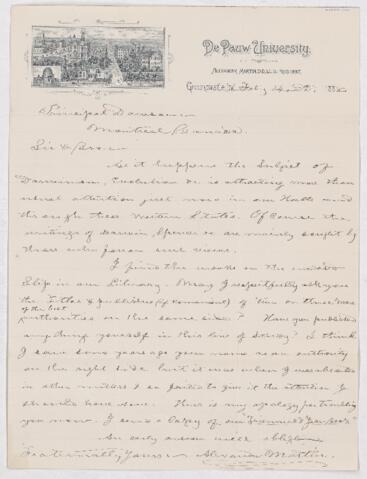 De Pauw University.
Alexander Martin, D.D. LL.D. President.
Greencastle, Feby
Principal Dawson
Montreal
Sir & Bro.
As it happens the subject of
Darwinism, Evolution &c is attracting more than
usual attention just now in our Halls and
through these Western States. Of course the
writings of Darwin, Spencer &c are mainly sought by
I find this
in our Library. May I respectfully ask you
the Titles & publishers (if convenient) of two or three
of the best
authorities on the same side? Have you published
anything yourself in this line of I think
I saw some years ago your name as an authority
on the right side but it was when I was
in other matters I so failed to give it the attention I
should have done. This is my apology for troubling
you now. I send a Copy of our
An early answer will oblige
Fraternally Yours Alexander Martin